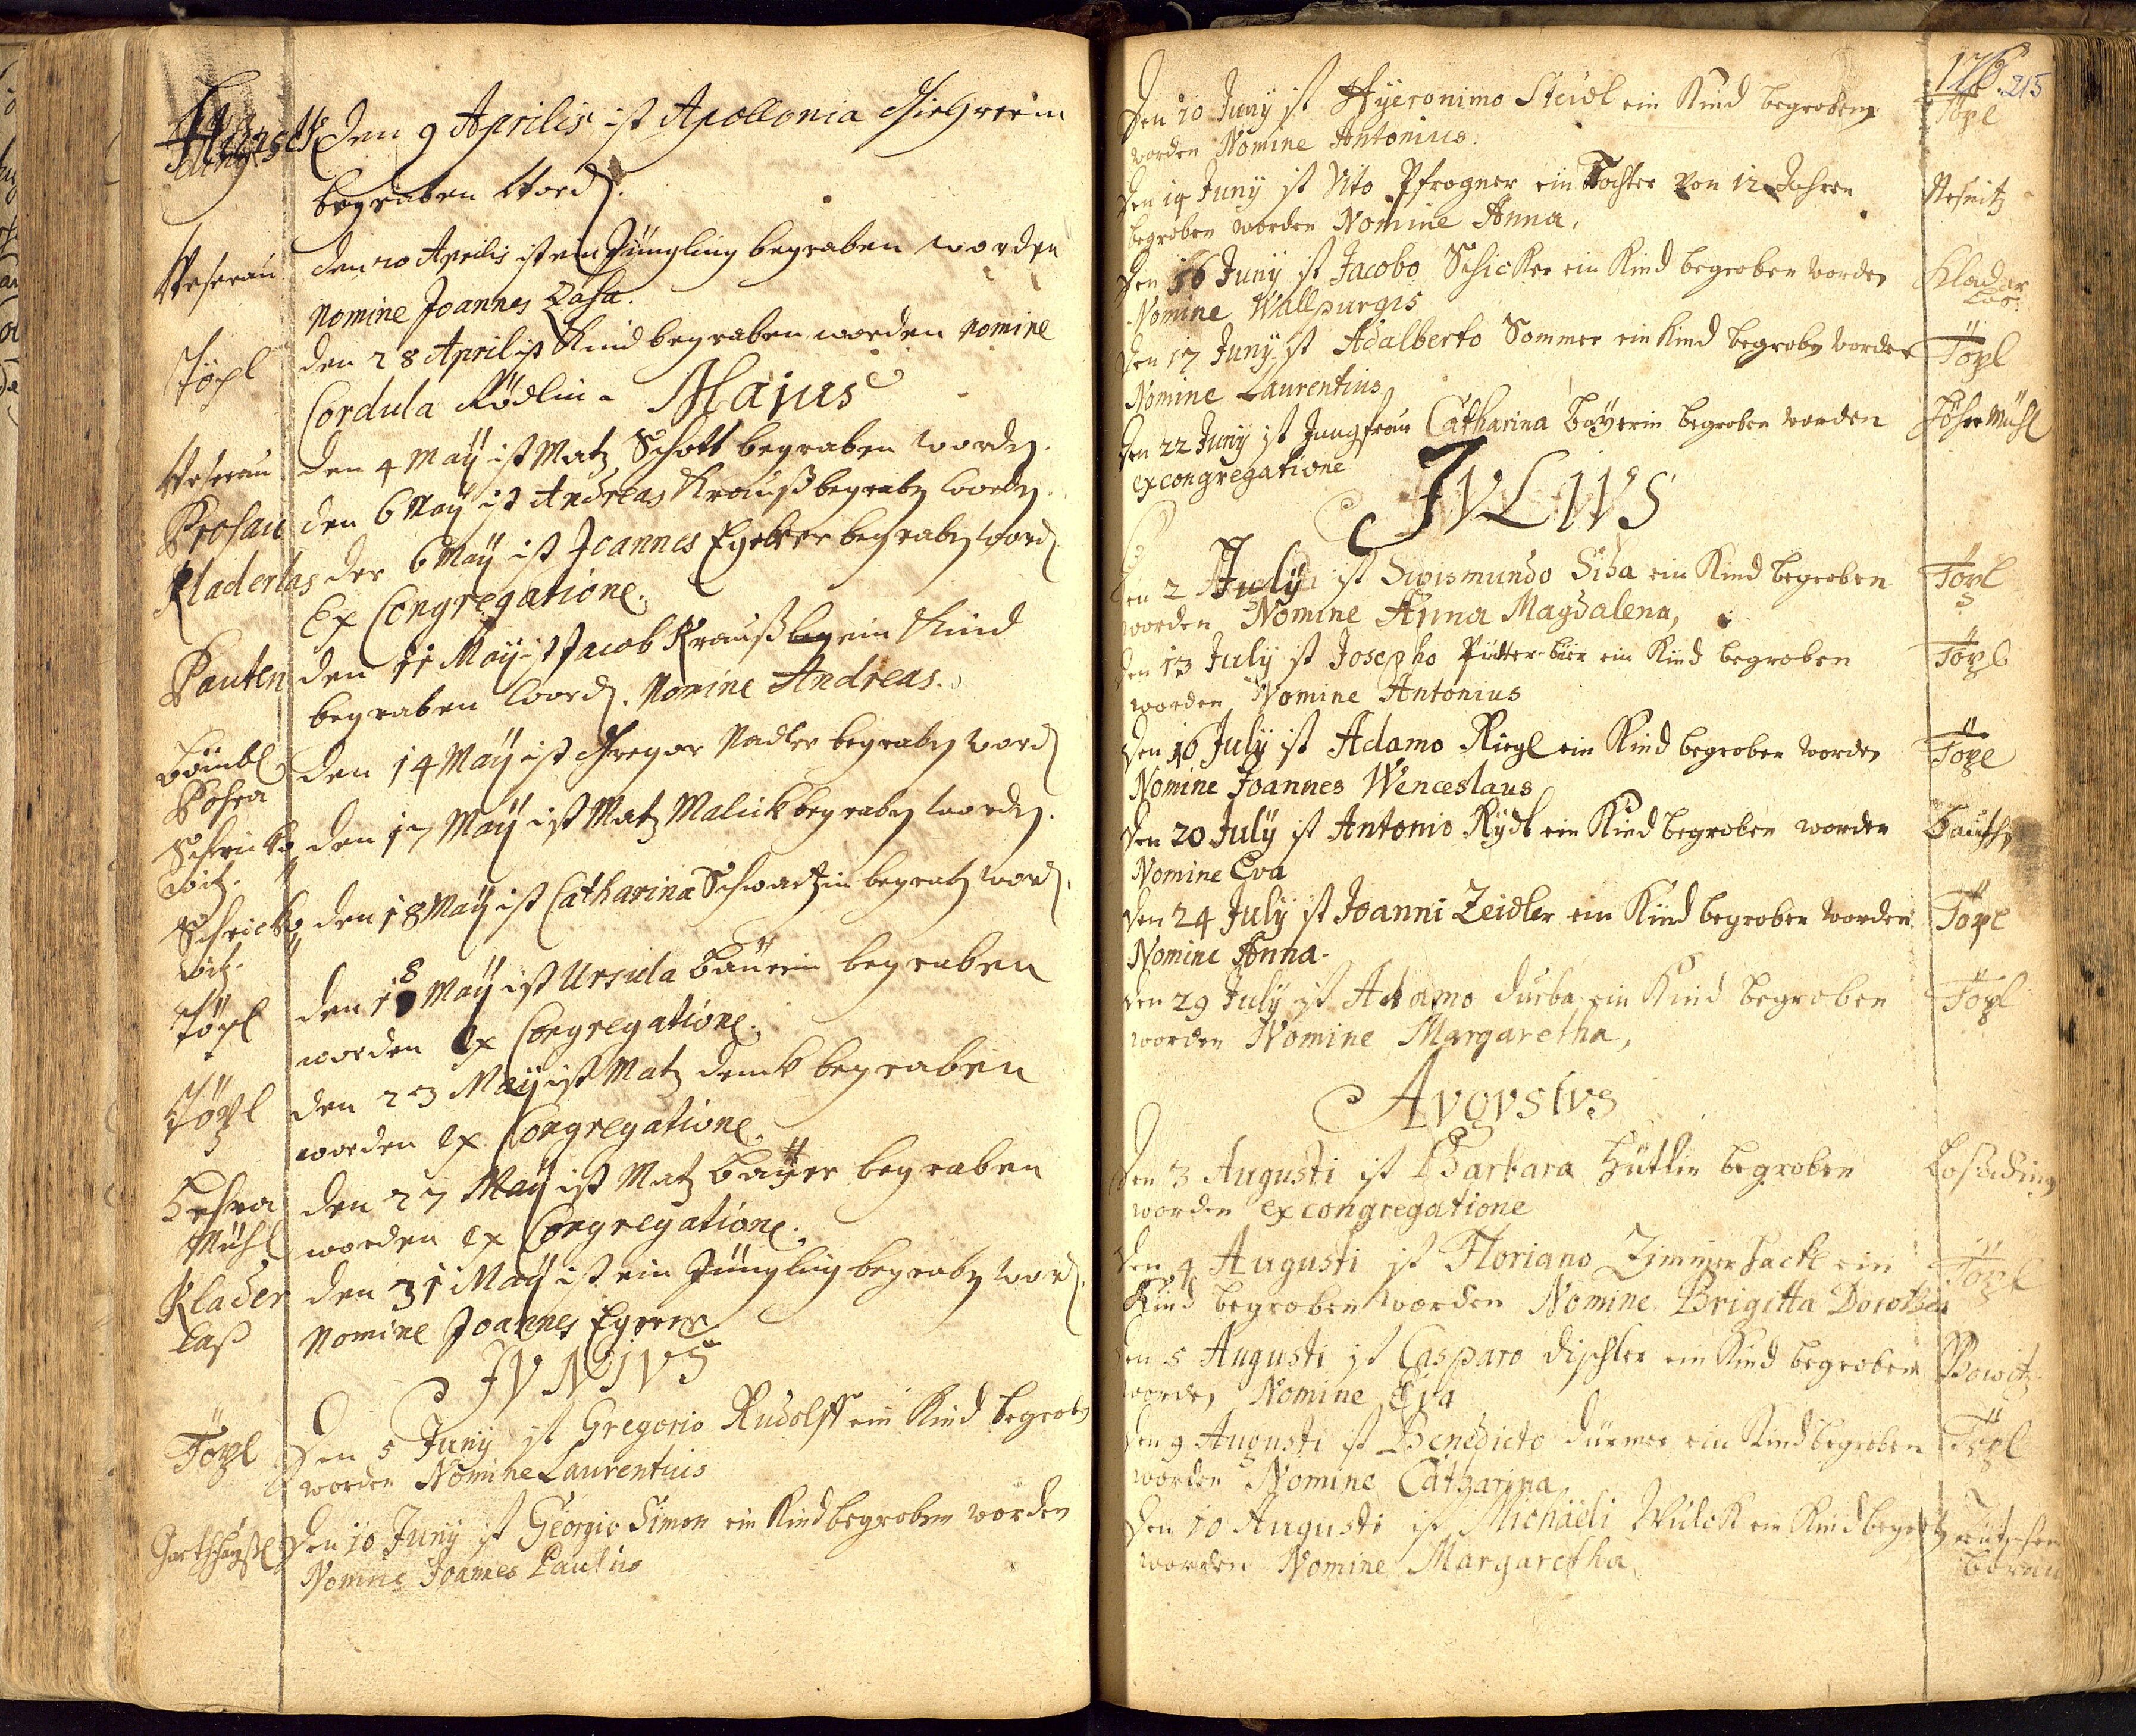 Hurschk den 9 Aprilis ist Apollonia
begraben word.
Weserau den 20 Aprilis ist ein Jüngling begraben worden
Nomine Joannes Lasa.
Töpl den 28 April ist Kind begraben worden Nomine
Cordula Rödlin. Majus
Weserau den 4 Maÿ ist Matz Schott begraben worden.
Prosau den 6 Maÿ ist Andreas Krauß begraben worden.
Kladerlas der 6 Maÿ ist Joannes Egerer begraben word.
Ex Congregatione.
Pauten den 11 Maÿ ist Jacob Krauß beg ein Kind
begraben word. Nomine Andreas.
den 14 Maÿ ist Gregor Nadler begraben word
den 17 Maÿ ist Matz Malick begraben worden.
witz.
den 18 Maÿ ist Catharina Schwartzin begraben word.
witz.
Töpl den 18 Maÿ ist Ursula Baÿerin begraben
worden Ex Congregatione.
Töpl den 23 Maÿ ist Matz Denk begraben
worden Ex Congregatione.
den 27 Maÿ ist Matz Baÿer begraben
Mühl worden ex Congregatione.
Klader den 31 Maÿ ist ein Jüngling begraben word.
laß Nomine Joannes Egerer
JVNIVS
Töpl Den 5 Junÿ ist Gregorio Rudolff ein Kind begraben
worden Nomine Laurentius
Den 10 Junÿ ist Georgio Simon ein Kind begraben worden
Nomine Joannes Paulus
176. 215
Den 10 Junÿ ist Hyeronimo Steidl ein Kind begraben Töpl
worden Nomine Antonius.
Den 14 Junÿ ist Vito Pfrogner ein Tochter von 12 Jahren
begraben worden Nomine Anna.
Den 16 Junÿ ist Jacobo Schicker ein Kind begraben worden Klader
Nomine Wallpurgis las
Den 17 Junÿ ist Adalberto Sommer ein Kind begraben worden Töpl
Nomine Laurentius
Den 22 Junÿ ist Jungfrau Catharina Baÿerin begraben worden
ex congregatione
JVLIVS
Den 2 Julÿ ist Sigismundo Sida ein Kind begraben Töpl
worden Nomine Anna Magdalena,
Den 13 Julÿ ist Josepho ein Kind begraben Töpl
worden Nomine Antonius
Den 16 Julÿ ist Adamo Riegl ein Kind begraben worden Töpl
Nomine Joannes Wenceslaus
Den 20 Julÿ ist Antonio Rÿdl ein Kind begraben worden
Nomine Eva
Den 24 Julÿ ist Joanni Zeidler ein Kind begraben worden Töpl
Nomine Anna.
Den 29 Julÿ ist Adamo Durba ein Kind begraben Töpl
worden Nomine Margaretha,
AVGVSTVS
Den 3 Augusti ist Barbara Hütlin begraben
worden ex congregatione
Den 4 Augusti ist Floriano Zimmerhackl ein Töpl
Kind begraben worden Nomine Brigitta Dorothea
Den 5 Augusti ist Casparo Dischler ein Kind begraben
worden Nomine Eva
Den 9 Augusti ist Benedicto Dürmer ein Kind begraben Töpl
worden Nomine Catharina
Den 10 Augusti ist Michaeli Wülck ein Kind begraben
worden Nomine Margaretha